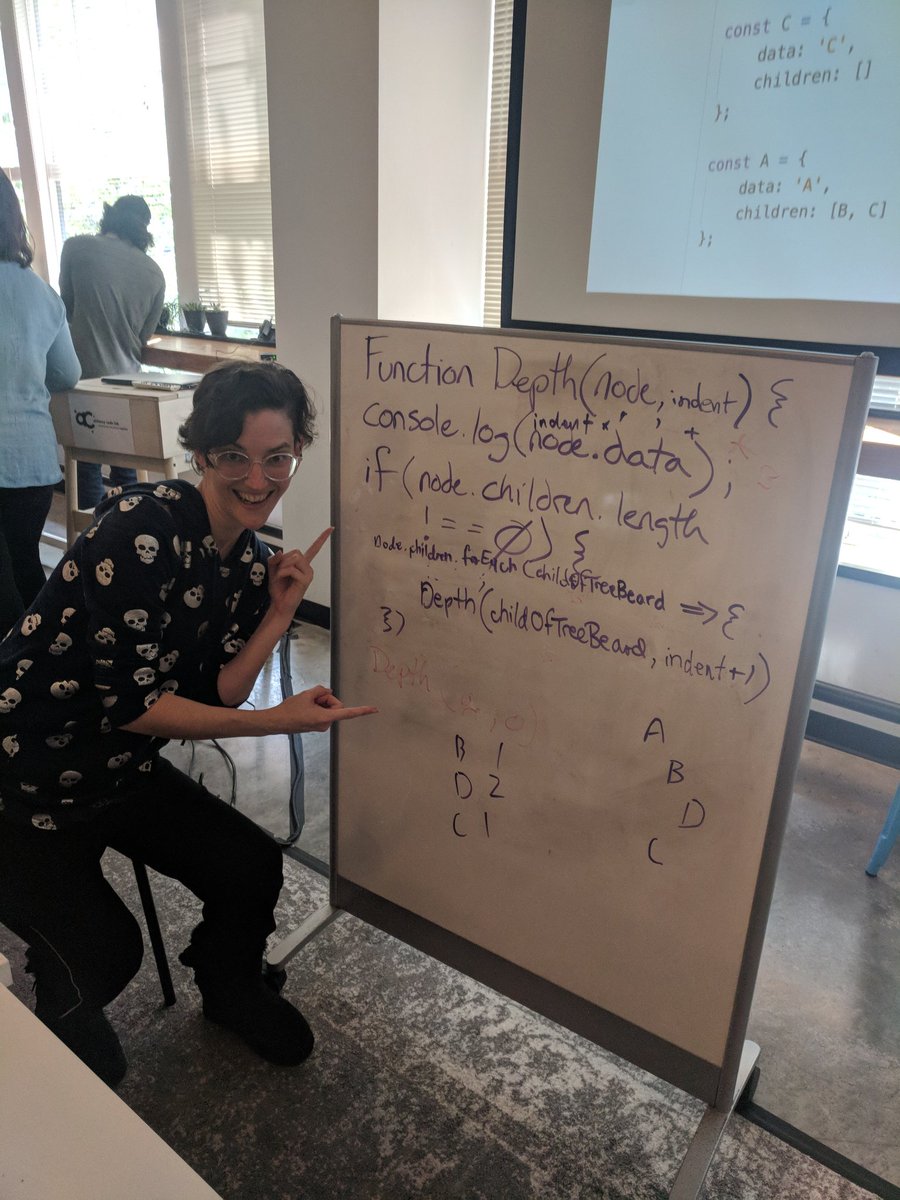 const C = {
data: 'C',
children: []
};
const A = {
data: 'A',
children: [B, C]
};
Function Depth(node, indent) {
indent * ' ' +
console.log(node.data);
if (node.children.length
!== 0) {
Node.children.forEach(childOfTreeBeard => {
Depth(childOfTreeBeard, indent+1)
})
Depth ( , 0)
B 1
D 2
C 1
A
B
D
C